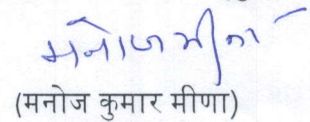 मनोज मीना
(मनोज कुमार मीणा)